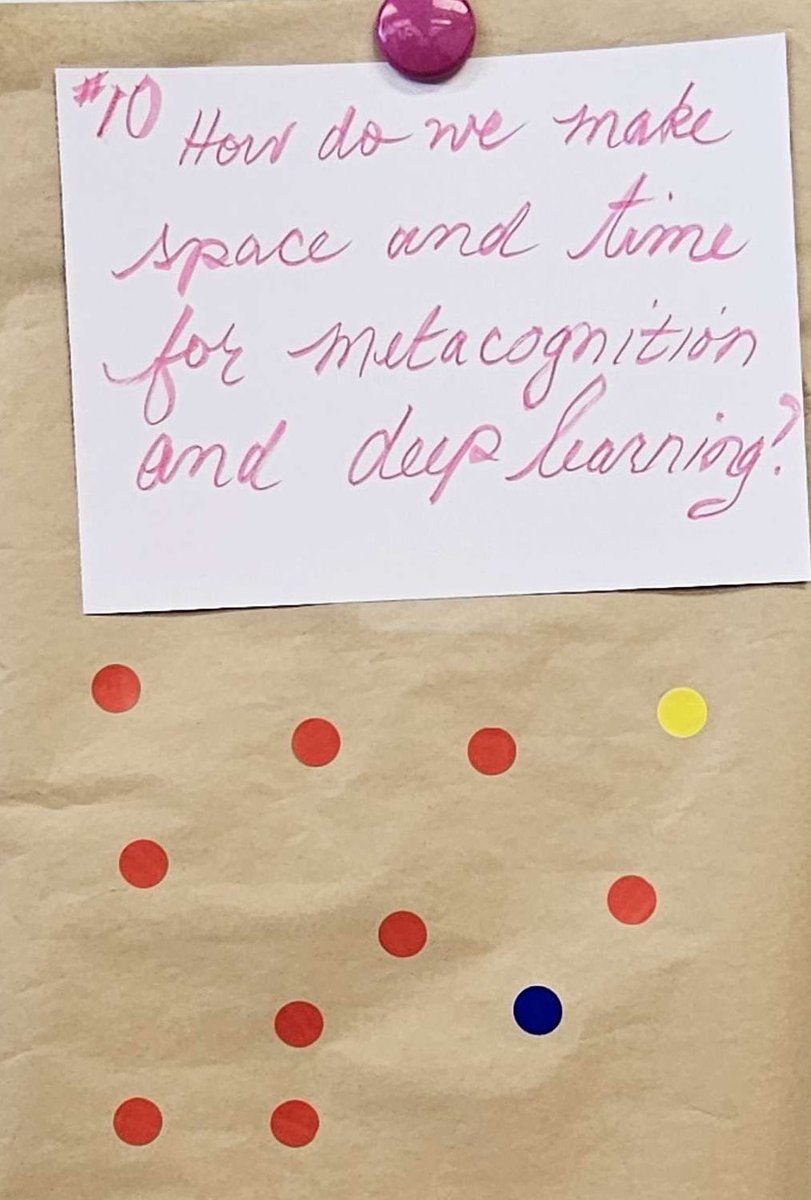 #10 How do we make
space and time
for metacognition
and deep learning?